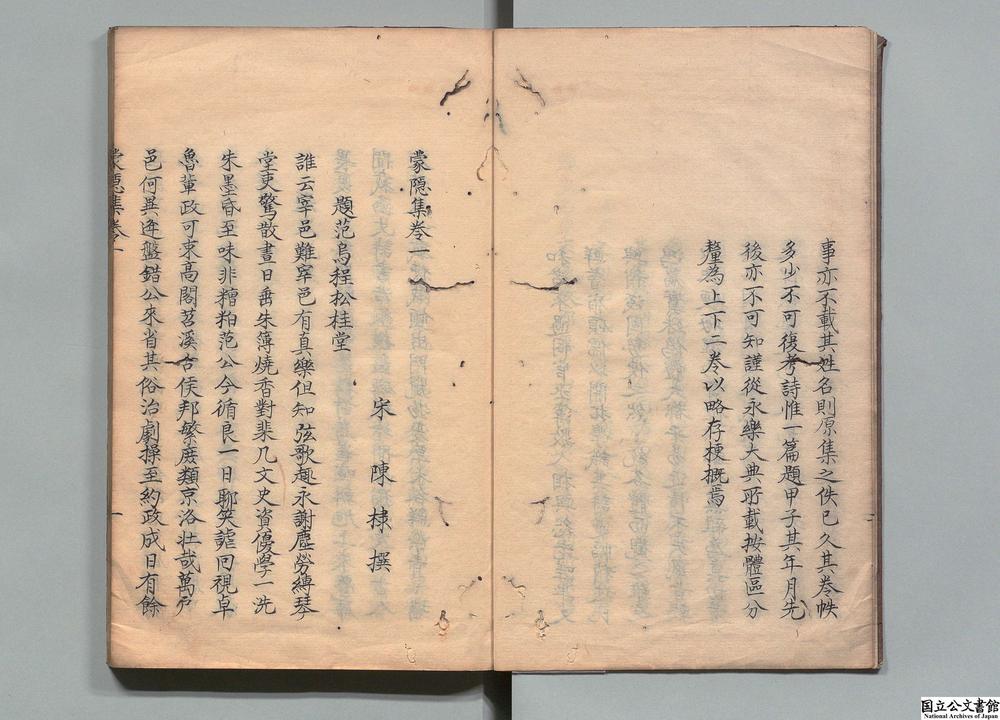 事亦不載其姓名則原集之佚已久其卷帙
多少不可復考詩惟一篇題甲子其年月先
後亦不可知謹從永樂大典所載按體區分
釐為上下二卷以略存梗概焉
蒙隱集卷一
宋 陳棣 撰
題范烏程松桂堂
誰云宰邑難宰邑有真樂但知弦歌趣永謝塵勞縛琴
堂吏驚散晝日垂朱簿燒香對棐几文史資優學一洗
朱墨昏至味非糟粕范公今循良一日聊笑謔回視卓
魯輩政可束高閣苕溪古侯邦繁庶類京洛壯哉萬戶
邑何異逢盤錯公來省其俗治劇操至約政成日有餘
蒙隱集卷一
一
国立公文書館
National Archives of Japan